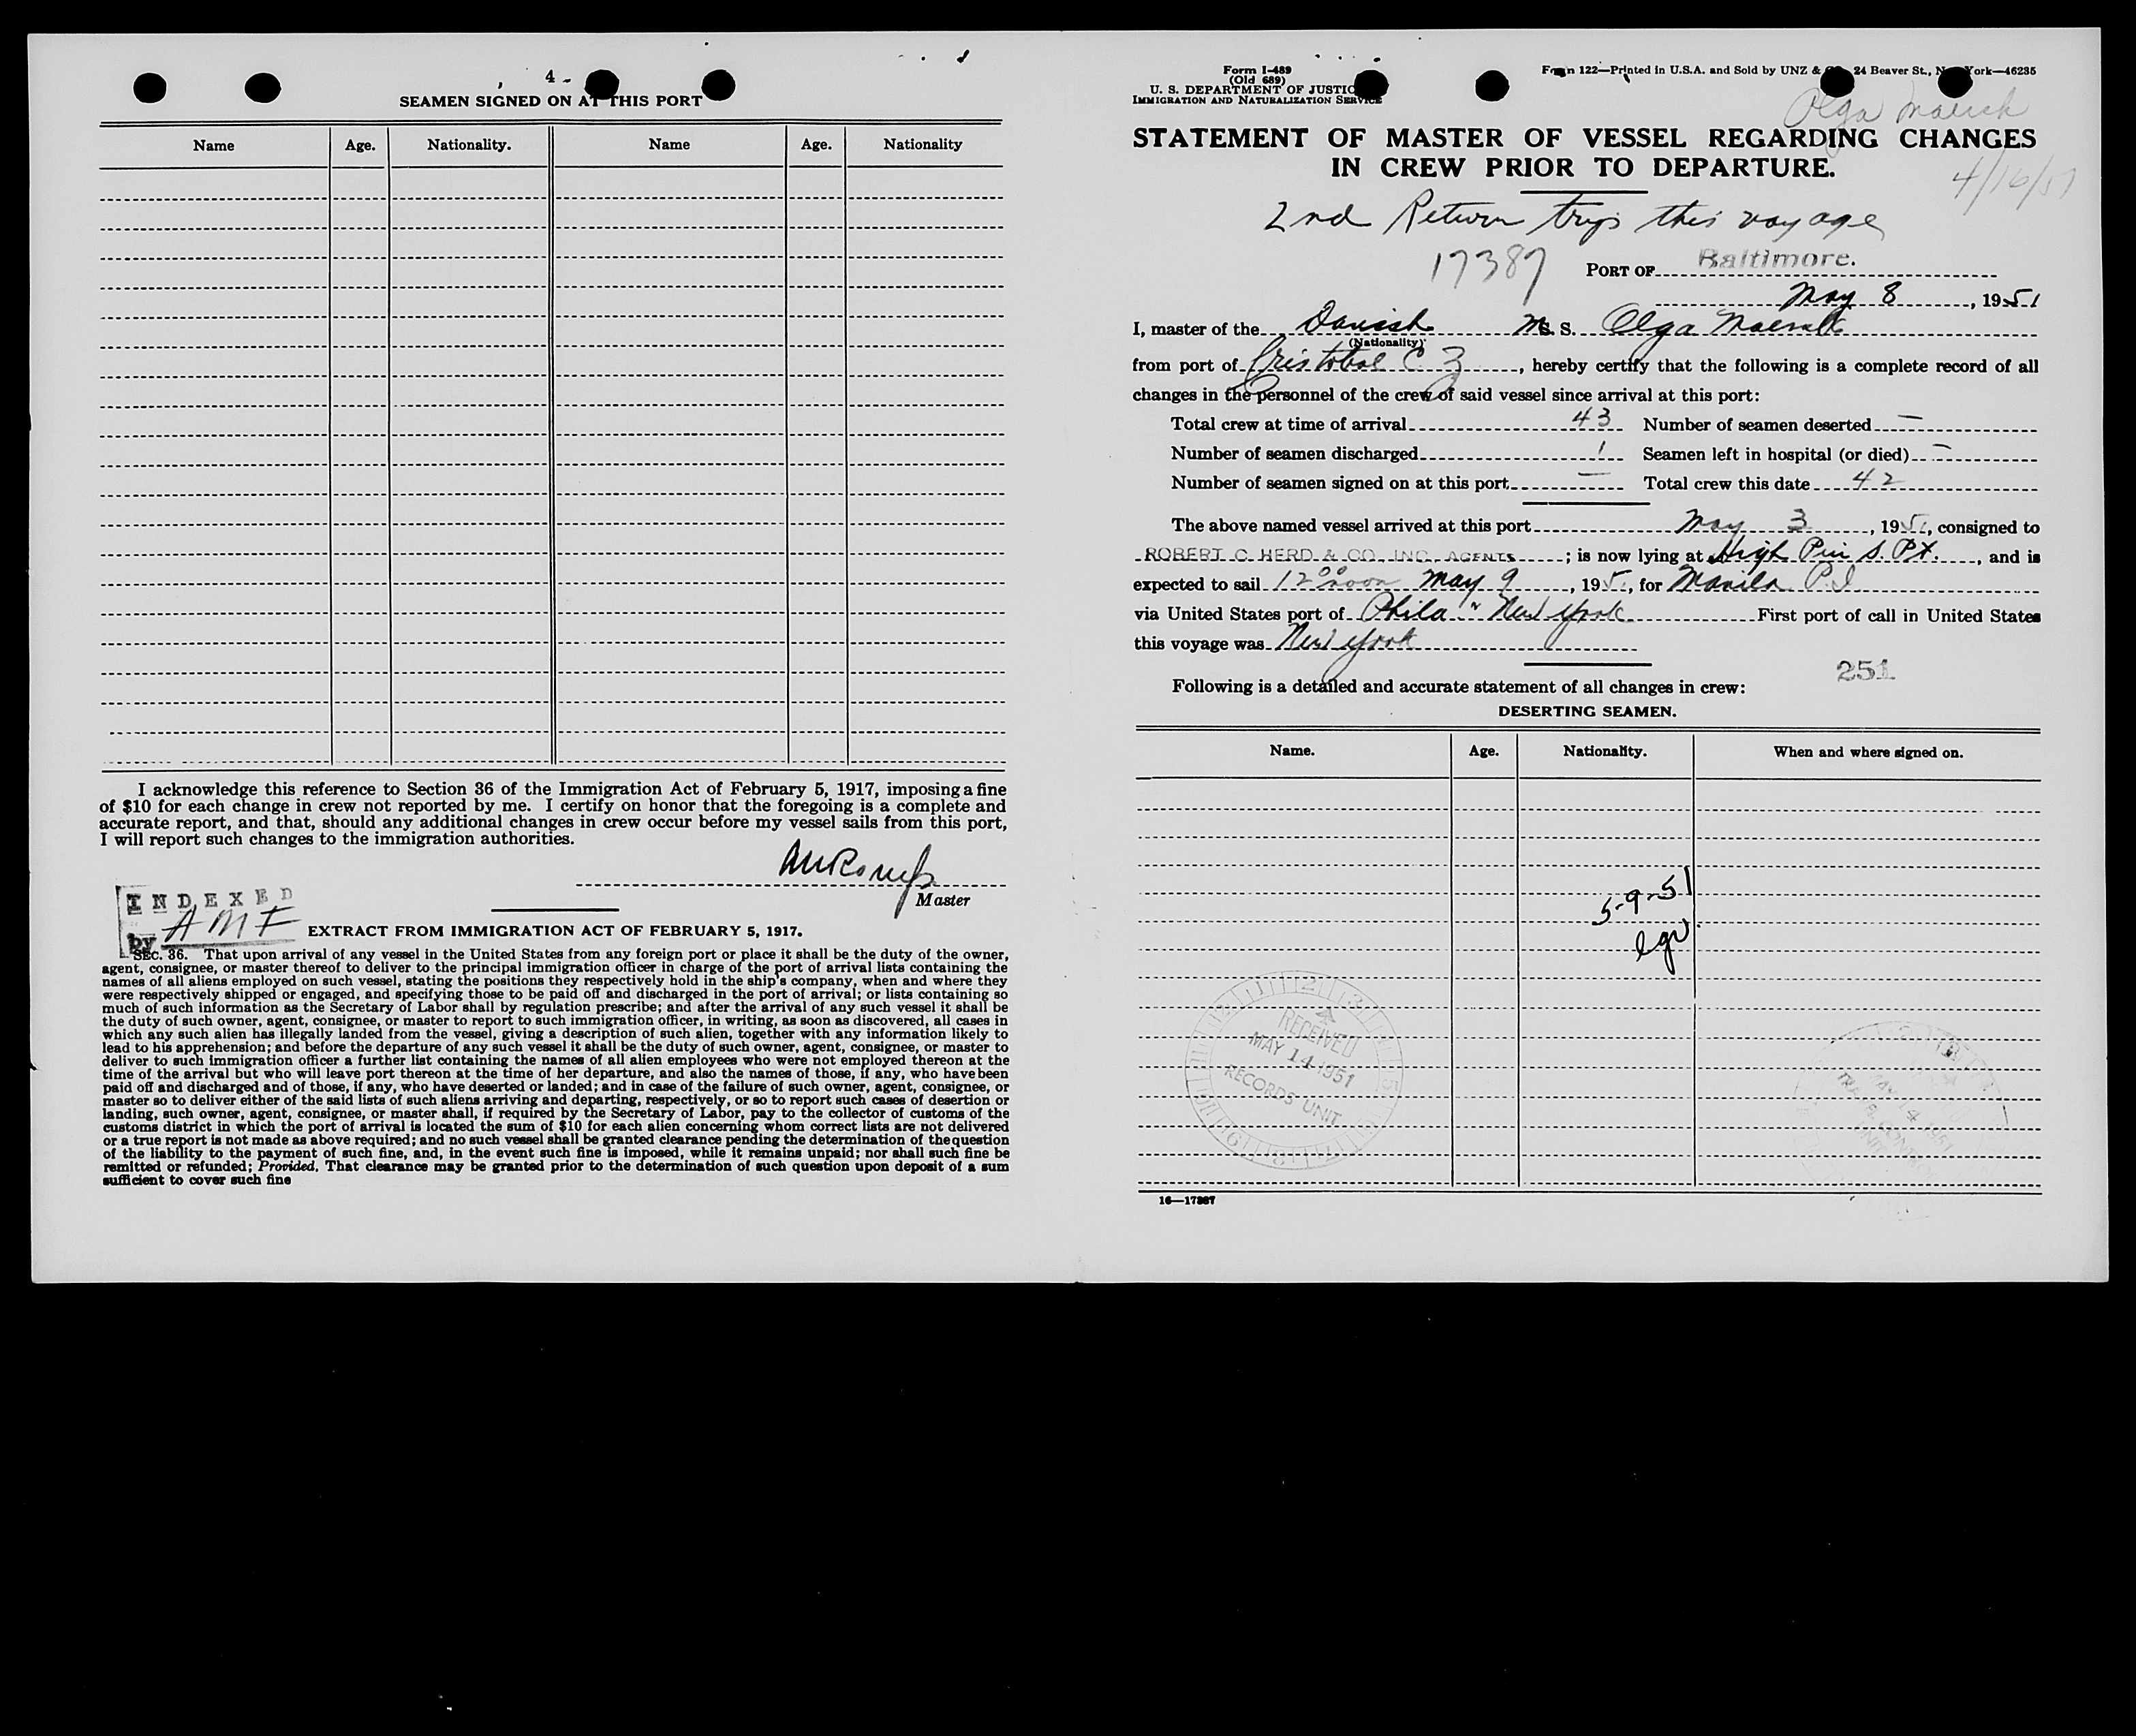 4 -
SEAMEN SIGNED ON AT THIS PORT
Name Age. Nationality. Name Age. Nationality
I acknowledge this reference to Section 36 of the Immigration Act of February 5, 1917, imposing a fine
of $10 for each change in crew not reported by me. I certify on honor that the foregoing is a complete and
accurate report, and that, should any additional changes in crew occur before my vessel sails from this port,
I will report such changes to the immigration authorities.
Master
INDEXED
by AMF
EXTRACT FROM IMMIGRATION ACT OF FEBRUARY 5, 1917.
SEC. 36. That upon arrival of any vessel in the United States from any foreign port or place it shall be the duty of the owner,
agent, consignee, or master thereof to deliver to the principal immigration officer in charge of the port of arrival lists containing the
names of all aliens employed on such vessel, stating the positions they respectively hold in the ship's company, when and where they
were respectively shipped or engaged, and specifying those to be paid off and discharged in the port of arrival; or lists containing so
much of such information as the Secretary of Labor shall by regulation prescribe; and after the arrival of any such vessel it shall be
the duty of such owner, agent, consignee, or master to report to such immigration officer, in writing, as soon as discovered, all cases in
which any such alien has illegally landed from the vessel, giving a description of such alien, together with any information likely to
lead to his apprehension; and before the departure of any such vessel it shall be the duty of such owner, agent, consignee, or master to
deliver to such immigration officer a further list containing the names of all alien employees who were not employed thereon at the
time of the arrival but who will leave port thereon at the time of her departure, and also the names of those, if any, who have been
paid off and discharged and of those, if any, who have deserted or landed; and in case of the failure of such owner, agent, consignee, or
master so to deliver either of the said lists of such aliens arriving and departing, respectively, or so to report such cases of desertion or
landing, such owner, agent, consignee, or master shall, if required by the Secretary of Labor, pay to the collector of customs of the
customs district in which the port of arrival is located the sum of $10 for each alien concerning whom correct lists are not delivered
or a true report is not made as above required; and no such vessel shall be granted clearance pending the determination of the question
of the liability to the payment of such fine, and, in the event such fine is imposed, while it remains unpaid; nor shall such fine be
remitted or refunded; Provided, That clearance may be granted prior to the determination of such question upon deposit of a sum
sufficient to cover such fine
Form I-489
(Old 689)
U. S. DEPARTMENT OF JUSTICE
IMMIGRATION AND NATURALIZATION SERVICE
Form 122—Printed in U.S.A. and Sold by UNZ & CO. 24 Beaver St., New York—46235
Olga Maersk
STATEMENT OF MASTER OF VESSEL REGARDING CHANGES
IN CREW PRIOR TO DEPARTURE.
4/16/51
2nd Return trip this voyage
17387 PORT OF Baltimore.
May 8, 1951
I, master of the Danish M.S. Olga Maersk
(Nationality)
from port of Cristobal C Z, hereby certify that the following is a complete record of all
changes in the personnel of the crew of said vessel since arrival at this port:
Total crew at time of arrival 43 Number of seamen deserted —
Number of seamen discharged 1 Seamen left in hospital (or died) —
Number of seamen signed on at this port — Total crew this date 42
The above named vessel arrived at this port May 3, 1951, consigned to
ROBERT C HERD & CO. INC. AGENTS; is now lying at High Pier S. Pt., and is
expected to sail 12⁰⁰ noon May 9, 195, for Manila P.I
via United States port of Phila & New York First port of call in United States
this voyage was New York
251
Following is a detailed and accurate statement of all changes in crew:
DESERTING SEAMEN.
Name. Age. Nationality. When and where signed on.
5-9-51
RECEIVED
MAY 14 1951
RECORDS UNIT
MAY 14 1951
16—17387